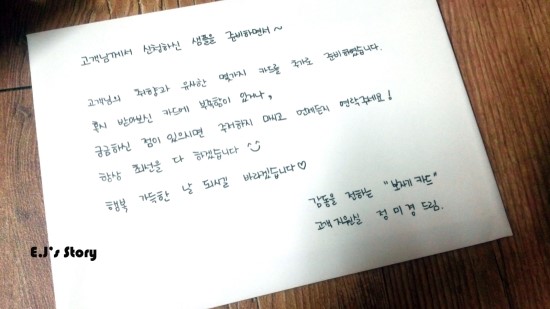 고객님께서 신청하신 샘플을 준비하면서~
고객님의 취향과 유사한 몇가지 카드를 추가로 준비하였습니다.
혹시 받아보신 카드에 부족함이 있거나,
궁금하신 점이 있으시면 걱정하지 마시고 언제든지 연락주세요!
항상 최선을 다 하겠습니다 ^^
행복 가득한 날 되시길 바라겠습니다♡
감동을 전하는 "보자기 카드"
고객지원실 정미경 드림.
E.J's Story